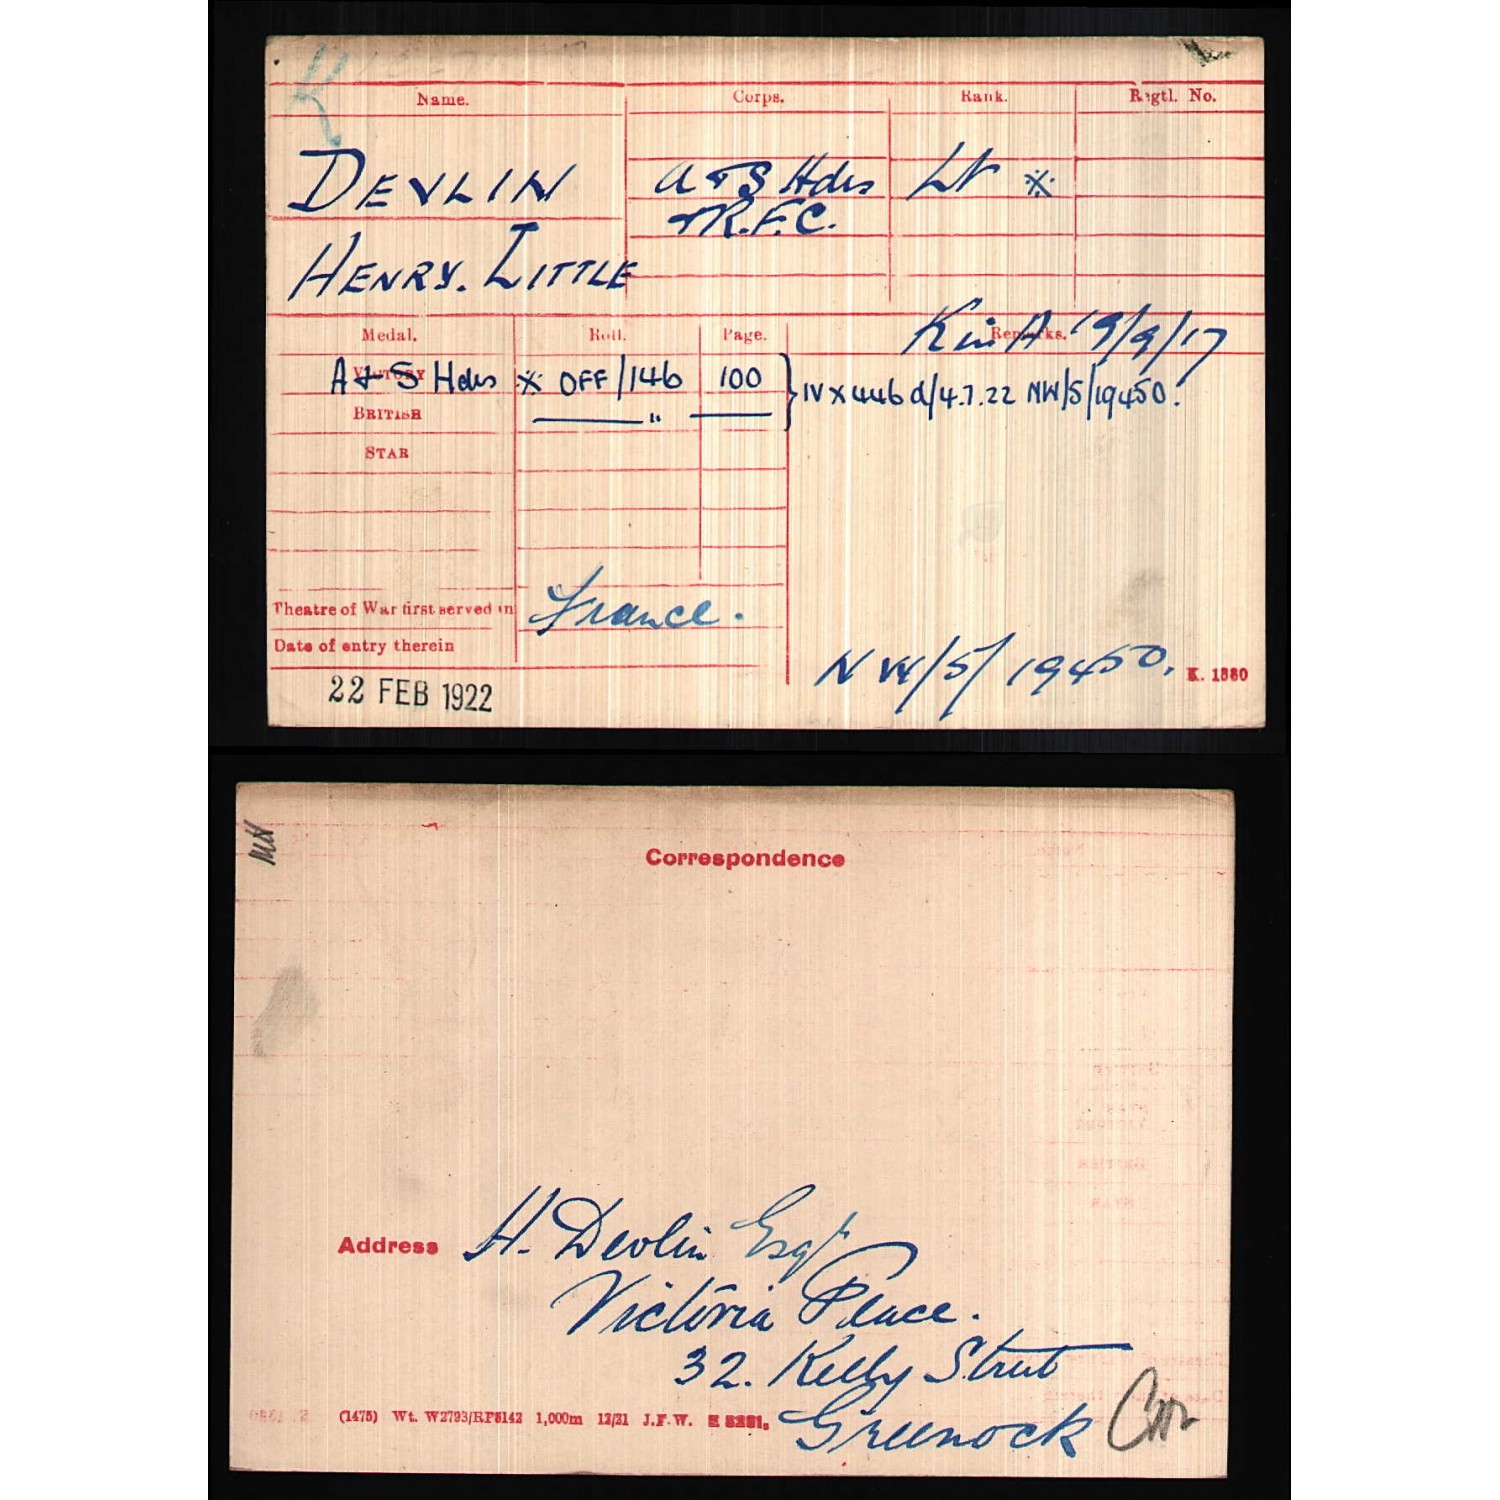 Name. Corps. Rank. Regtl. No.
DEVLIN A & S Hdrs Lt ※
& R.F.C.
HENRY. LITTLE
Medal. Roll. Page. Remarks.
K in A 19/9/17
VICTORY A & S Hdrs ※ OFF/146 100 } IV X 446 d/4.7.22 NW/5/19450.
BRITISH " 
STAR
Theatre of War first served in France.
Date of entry therein
22 FEB 1922
NW/5/19450. K. 1380
Correspondence
Address H. Devlin Esqr
Victoria Place.
32. Kelly Street
Greenock
(1475) Wt. W2793/RP5142 1,000m 12/21 J.F.W.